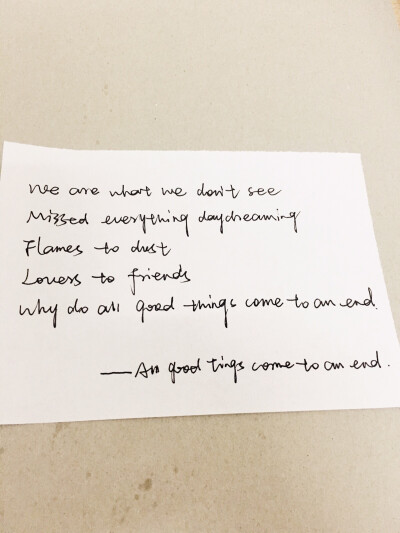 We are what we don't see
Missed everything daydreaming
Flames to dust
Lovers to friends
Why do all good things come to an end.
——All good tings come to an end.